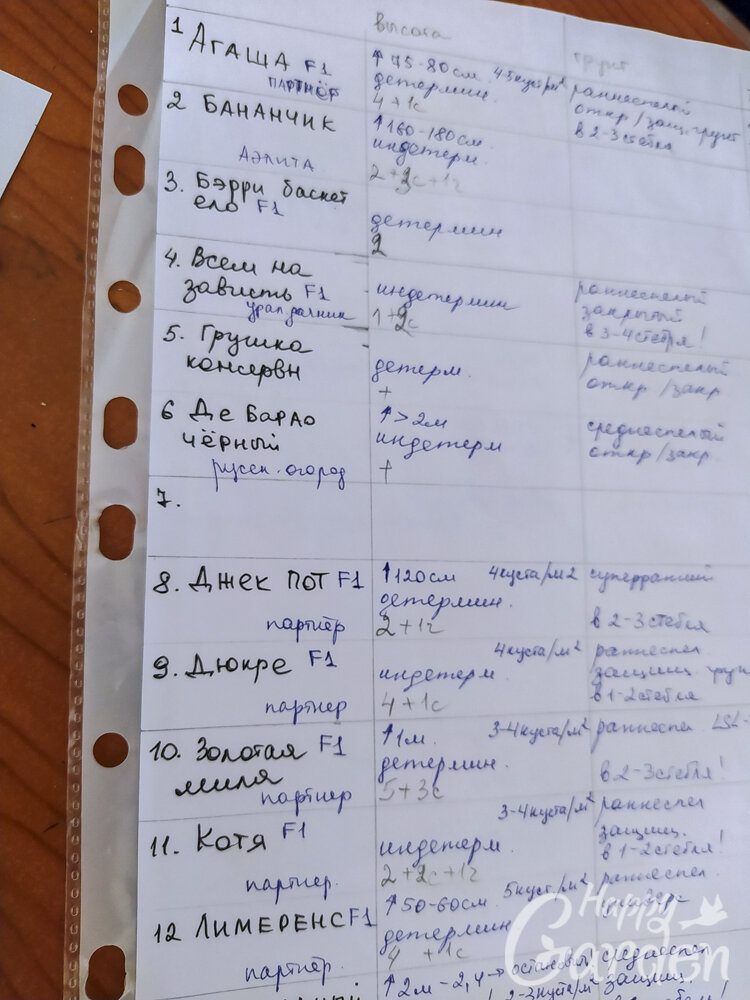 высота
грунт
1 Агаша F1
партнёр
↑75-80см. 4-5куст/м²
детермин.
4+1с
раннеспелый
откр/защ. грунт
в 2-3стебля
2 Бананчик
Аэлита
↑160-180см.
индетерм.
раннеспелый
3. Бэрри баскет
ело F1
детермин
2
4. Всем на
зависть F1
урал дачник
индетермин
1+2с
раннеспелый
закрытый
в 3-4стебля!
5. Грушка
консервн
детерм.
+
раннеспелый
откр/закр
6 Де Барао
чёрный
русск. огород
↑>2м
индетерм
+
среднеспелый
откр/закр
7.
8. Джек пот F1
партнёр
↑120см 4куста/м2
детермин.
2+1г
суперранний
в 2-3стебля
9. Дюкре F1
партнер
4куста/м²
индетерм.
4+1с
раннеспел
защищ. грун
в 1-2стебля
10. Золотая F1
миля
партнер
↑1м. 3-4куста/м²
детермин.
5+3с
раннеспел LSL-
в 2-3стебля!
11. Котя F1
партнер.
3-4куста/м²
индетерм.
2+2с+1г
раннеспел
защищ.
в 1-2стебля!
12 Лимеренс F1
партнёр.
↑50-60см. 5куст/м²
детермин
4 +1с
раннеспел.
↑2м-2,4→
среднеспел
защищ.
Happy
Garden